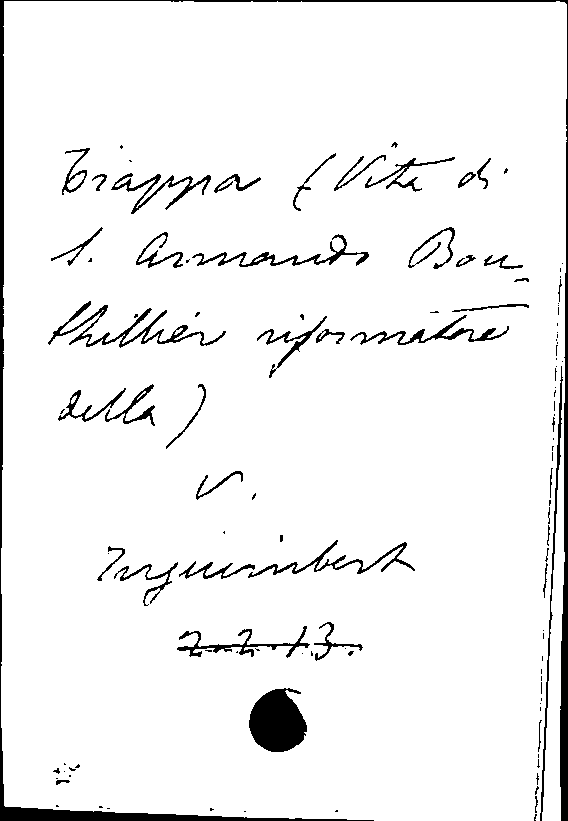 Trappa (Vita di
S. Armando Bou-
thillier riformatore
della)
V.
Inguimbert
2.2.13.